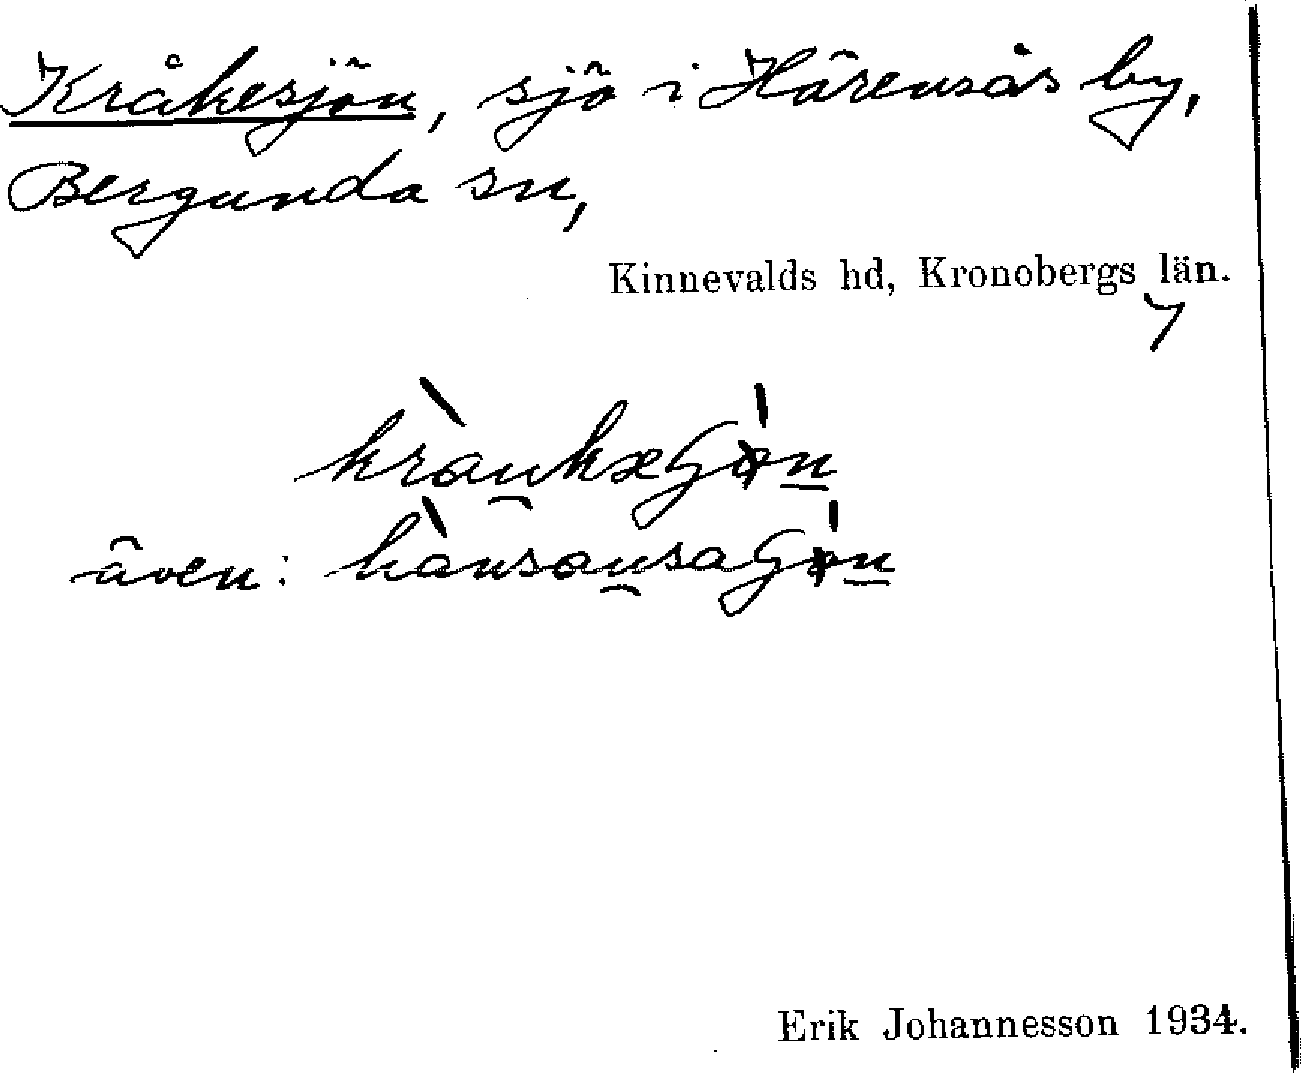 Kråkesjön, sjö i Härensås by,
Bergunda sn,
Kinnevalds hd, Kronobergs län.
7
kràu̯kæGön
även: hànsau̯saGön
Erik Johannesson 1934.